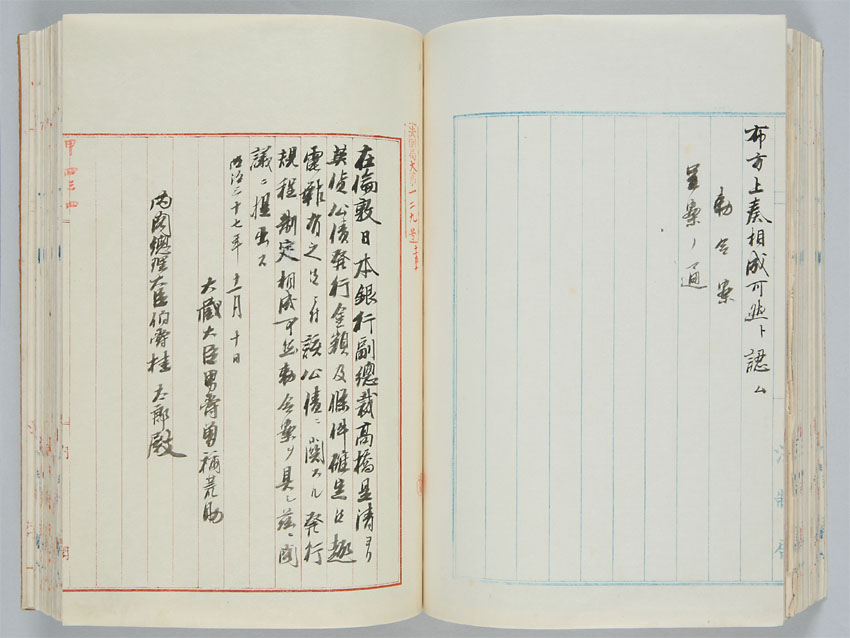 布方上奏相成可然ト認ム
勅令案
呈案ノ通
在倫敦日本銀行副總裁高橋是清ヨリ
英貨公債発行金額及條件確定ノ趣
電報有之候ニ付該公債ニ関スル発行
規程制定相成可然勅令案ヲ具シ茲ニ閣
議ニ提出ス
明治三十七年十一月十日
大藏大臣男爵曽禰荒助
内閣總理大臣伯爵桂太郎殿
甲四三四